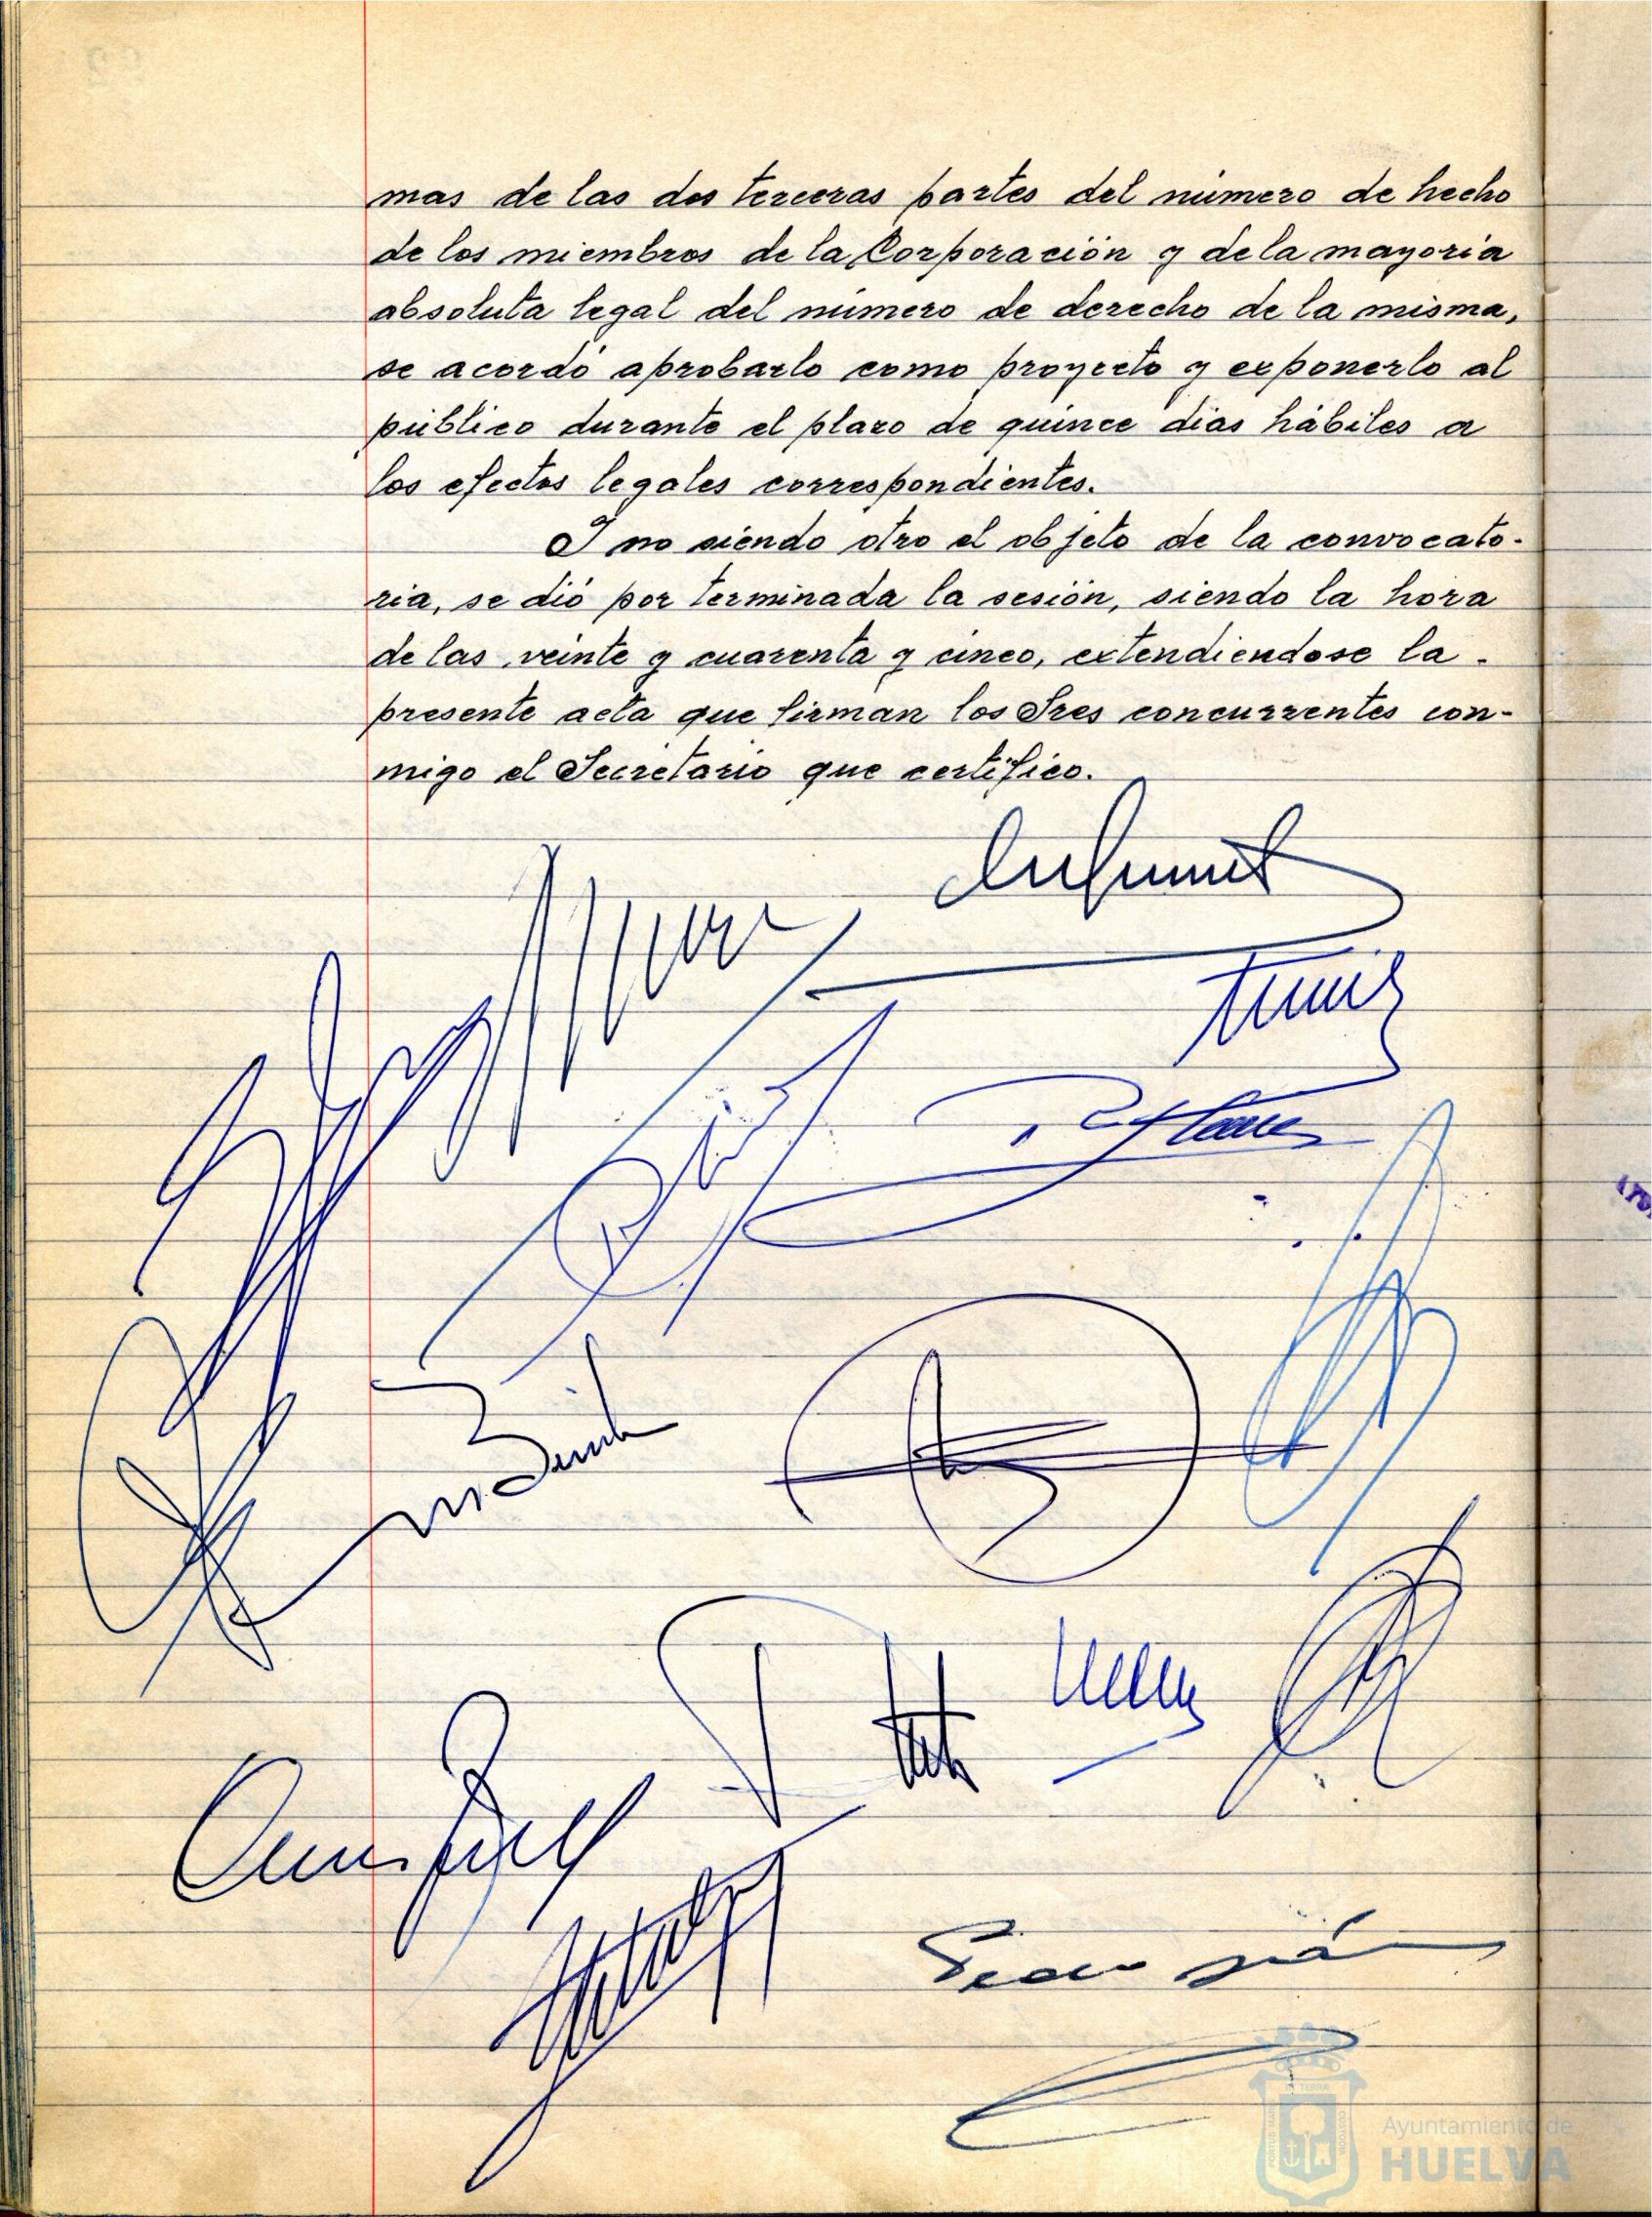 mas de las dos terceras partes del número de hecho
de los miembros de la Corporación y de la mayoria
absoluta legal del número de derecho de la misma,
se acordó aprobarlo como proyecto y exponerlo al
público durante el plazo de quince dias hábiles a
los efectos legales correspondientes.
Y no siendo otro el objeto de la convocato-
ria, se dió por terminada la sesión, siendo la hora
de las veinte y cuarenta y cinco, extendiendose la
presente acta que firman los Sres concurrentes con-
migo el Secretario que certifico.
Ayuntamiento de
HUELVA